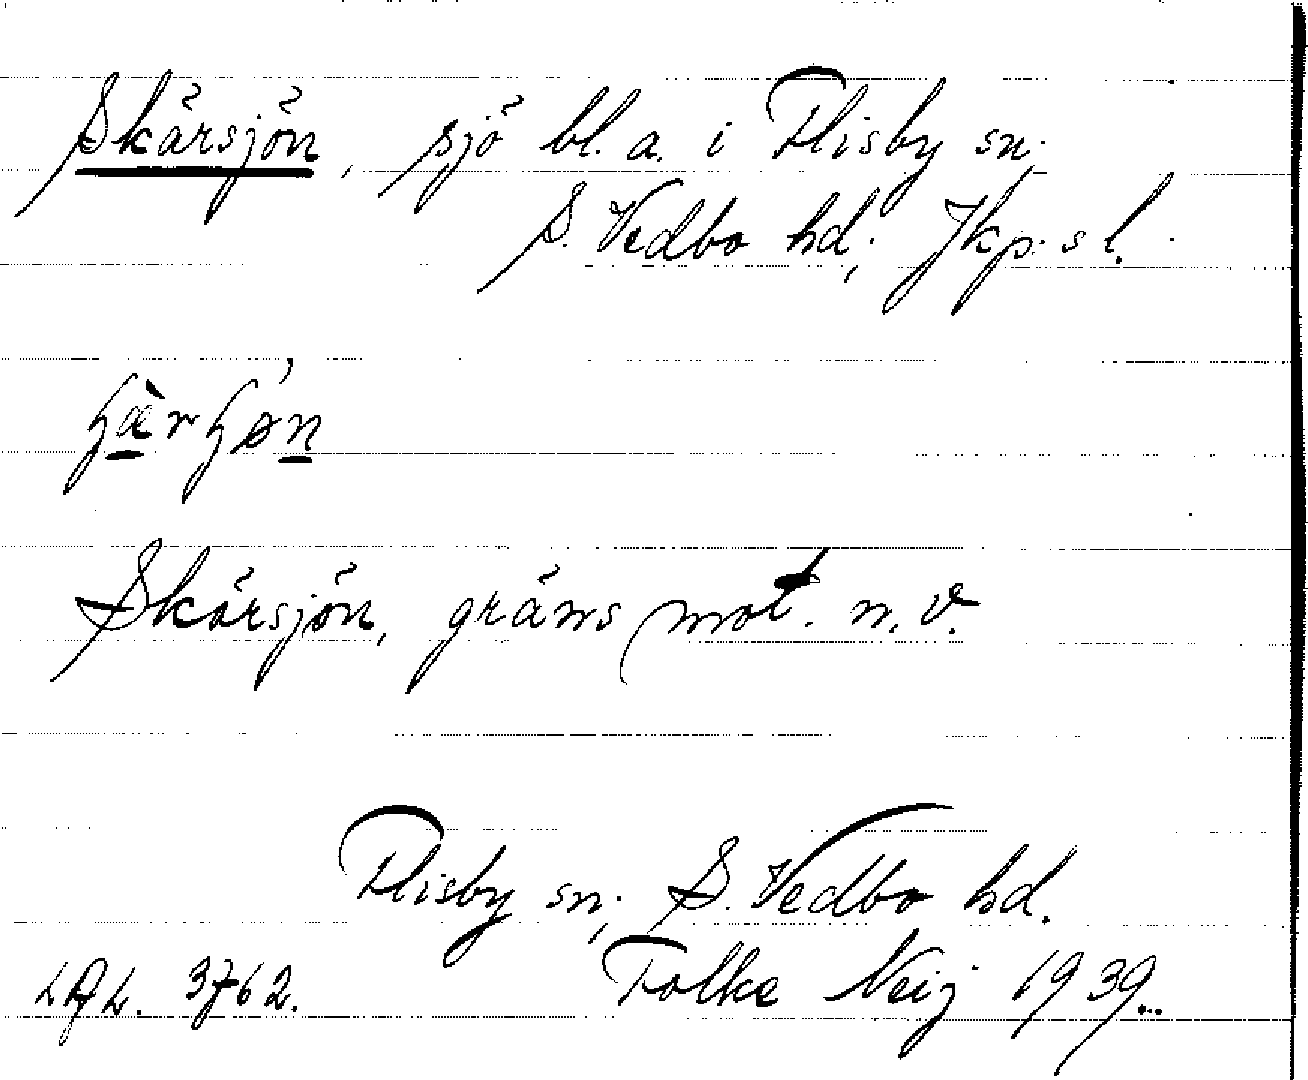 Skärsjön, sjö bl. a. i Flisby sn.
S. Vedbo hd; Jkp. s l.
Skärsjön, gräns mot. n. v.
Flisby sn; S. Vedbo hd.
LAL. 3762. Folke Neij 1939.